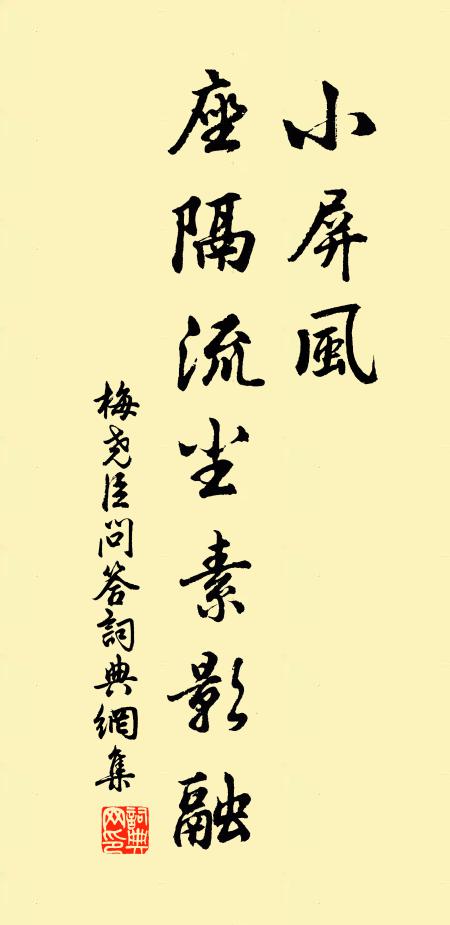 小屏風
座隔流尘素影融
梅尧臣問答詞典網集
詞典
网印